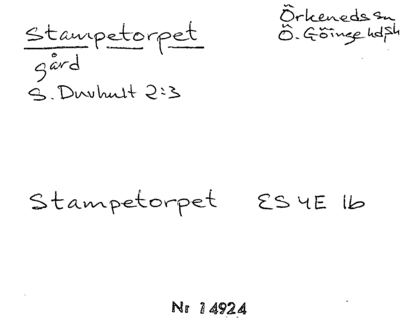 Stampetorpet
gård
S. Duvhult 2:3
Örkeneds sn
Ö. Göinge hdsh
Stampetorpet ES 4E 1b
Nr 14924